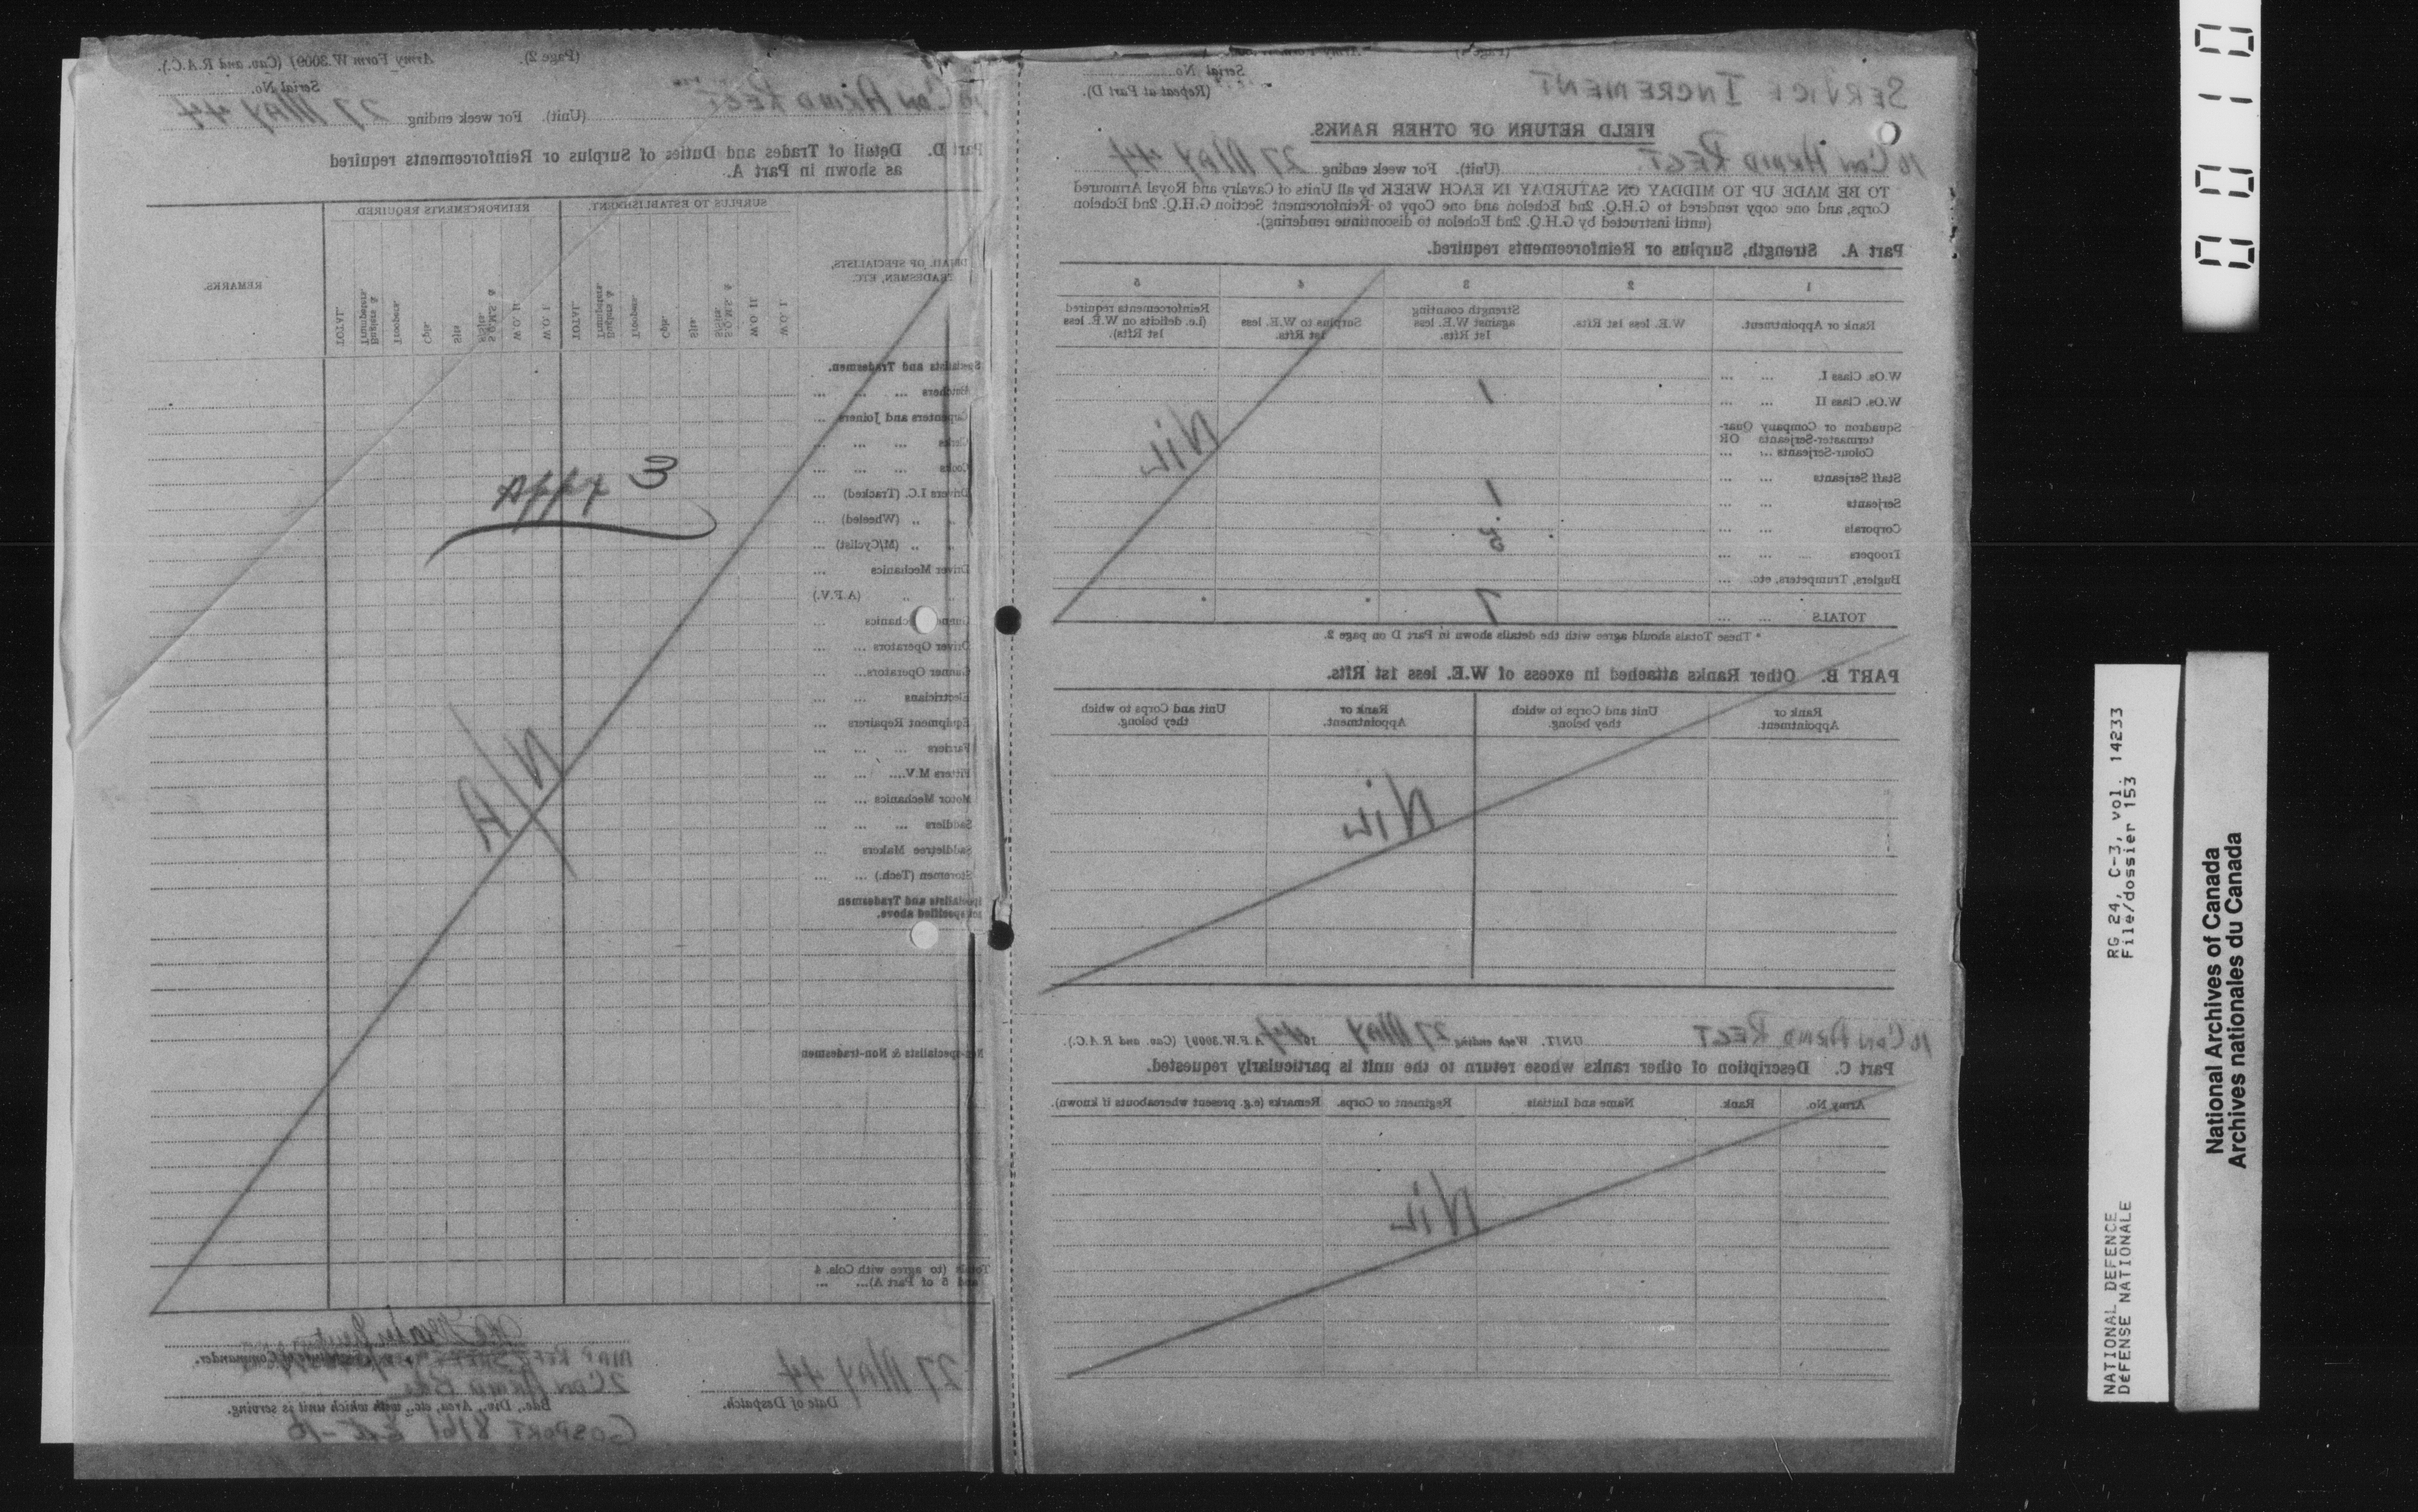 SERVICE INCREMENT
Serial No.
(Repeat at Part D).
FIELD RETURN OF OTHER RANKS.
10 Cdn Armd Regt. (Unit). For week ending 27 May 44
TO BE MADE UP TO MIDDAY ON SATURDAY IN EACH WEEK by all Units of Cavalry and Royal Armoured
Corps, and one copy rendered to G.H.Q. 2nd Echelon and one Copy to Reinforcement Section G.H.Q. 2nd Echelon
(until instructed by G.H.Q. 2nd Echelon to discontinue rendering).
Part A. Strength, Surplus or Reinforcements required.
1 2 3 4 5
Rank or Appointment. W.E. less 1st Rfts. Strength counting against W.E. less 1st Rfts. Surplus to W.E. less 1st Rfts. Reinforcements required (i.e. deficits on W.E. less 1st Rfts).
W.Os. Class I. ... ...
W.Os. Class II ... ... 1
Squadron or Company Quar-
termaster-Serjeants OR
Colour-Serjeants ... ...
Nil
Staff Serjeants ... ...
Serjeants ... ... 1
Corporals ... ... 5
Troopers ... ...
Buglers, Trumpeters, etc. ...
TOTALS ... ... 7
* These Totals should agree with the details shown in Part D on page 2.
PART B. Other Ranks attached in excess of W.E. less 1st Rfts.
Rank or Appointment. Unit and Corps to which they belong. Rank or Appointment. Unit and Corps to which they belong.
Nil
10 Cdn Armd Regt UNIT. Week ending 27 May 1944 A.F.W. 3009J (Cav. and R.A.C.).
Part C. Description of other ranks whose return to the unit is particularly requested.
Army No. Rank. Name and Initials Regiment or Corps. Remarks (e.g. present whereabouts if known).
Nil
(Page 2). Army Form W.3009J (Cav. and R.A.C.).
Serial No.
10 Cdn Armd Regt (Unit). For week ending 27 May 44
Part D. Detail of Trades and Duties of Surplus or Reinforcements required
as shown in Part A.
DETAIL OF SPECIALISTS, TRADESMEN, ETC. SURPLUS TO ESTABLISHMENT. REINFORCEMENTS REQUIRED REMARKS.
W.O. I. W.O. II. S.Q.M.S. & S/Sjts Sjts Cpls. Troopers. Buglers & Trumpeters TOTAL. W.O. I W.O. II S.Q.M.S. & S/Sjts Sjts Cpls Troopers. Buglers & Trumpeters. TOTAL.
Specialists and Tradesmen.
Butchers ... ... ...
Carpenters and Joiners ...
Clerks ... ... ...
Cooks ... ... ...
Appx 3
Drivers I.C. (Tracked) ...
„ „ (Wheeled) ...
„ „ (M/Cyclist) ...
Driver Mechanics ...
„ „ (A.F.V.)
Gunner Mechanics ...
Driver Operators ... ...
Gunner Operators... ...
Electricians ... ...
Equipment Repairers ...
Farriers ... ... ...
N/A
Fitters M.V.... ... ...
Motor Mechanics ... ...
Saddlers ... ... ...
Saddletree Makers ...
Storemen (Tech.) ... ...
Specialists and Tradesmen
not specified above.
Non-specialists & Non-tradesmen
Totals (to agree with Cols. 4
and 5 of Part A)... ...
27 May 44
Date of Despatch.
Commander.
2 Cdn Armd Bde
Bde., Div., Area, etc., with which unit is serving.
GOSPORT
0010
RG 24, C-3, vol. 14233
File/dossier 153
NATIONAL DEFENCE
DÉFENSE NATIONALE
National Archives of Canada
Archives nationales du Canada